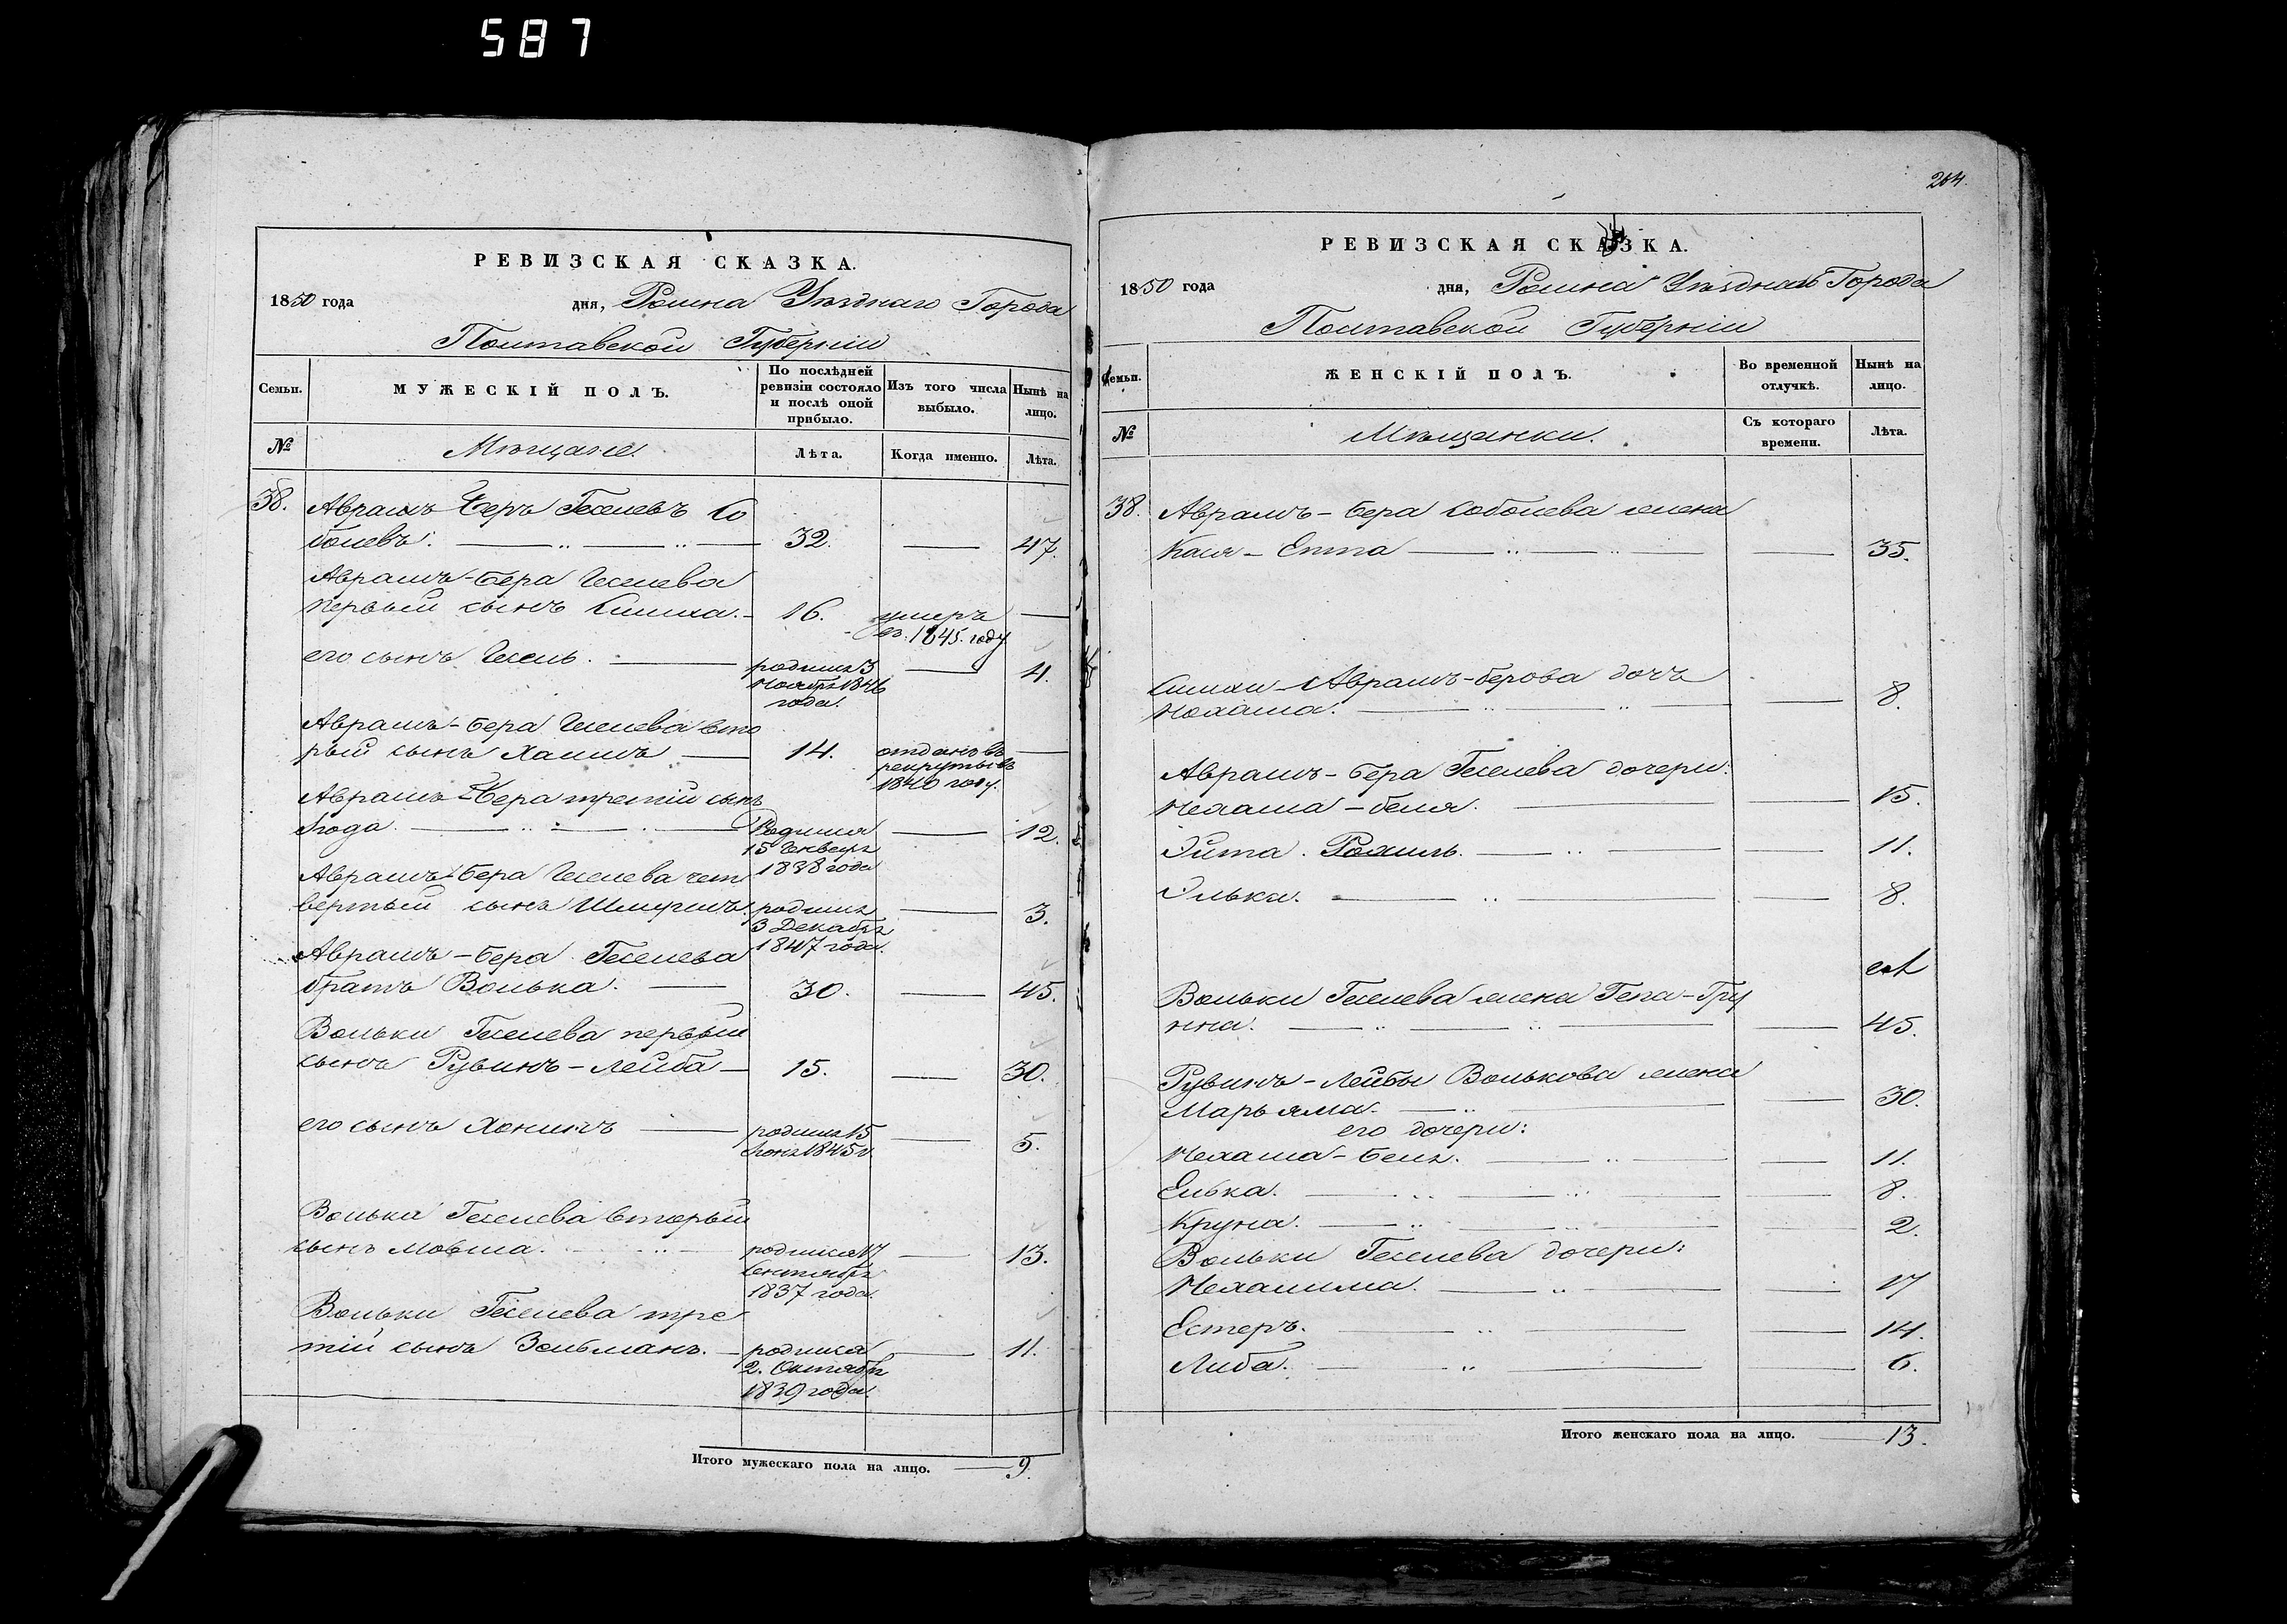 587
РЕВИЗСКАЯ СКАЗКА.
1850 года дня, Ромна Уѣзднаго Города
Полтавской Губерніи
Семьи.
МУЖЕСКІЙ ПОЛЪ.
По послѣдней ревизіи состояло и послѣ оной прибыло.
Изъ того числа выбыло.
Нынѣ на лицо.
№ Мѣщане. Лѣта. Когда именно. Лѣта.
38. Аврамъ Беръ Геселевъ Со
болевъ. 32. 47.
Аврамъ-Бера Геселева
первый сынъ Симха. 16. умеръ
въ 1845. году
его сынъ Гесель. родился 3 4.
Ноября 1846
года.
Аврамъ-Бера Геселева вто
рый сынъ Хаимъ 14. отданъ въ
рекруты въ
1840 году.
Аврамъ-Бера третій сынъ
Іюда. Родился 12.
15 Генваря
1838 года
Аврамъ-Бера Геселева чет
вертый сынъ Шмуилъ. родился 3.
3 Декабря
1847 года.
Аврамъ-Бера Геселева
братъ Волька. 30. 45.
Вольки Геселева первый
сынъ Рувинъ-Лейба 15. 30.
его сынъ Хонинъ родился 15 5.
1845 г.
Вольки Геселева вторый
сынъ Мовша. родился 17 13.
Сентября
1837 года.
Вольки Геселева тре
тій сынъ Зельманъ. родился 11.
2. Октября
1839 года.
Итого мужескаго пола на лицо. 9.
204.
РЕВИЗСКАЯ СКАЗКА.
1850 года дня, Ромна Уѣзднаго Города
Полтавской Губерніи
Семьи.
ЖЕНСКІЙ ПОЛЪ.
Во временной отлучкѣ.
Нынѣ на лицо.
№ Мѣщанки. Съ котораго времени. Лѣта.
38. Аврамъ-Бера Соболева жена
Етта 35.
Симхи Аврамъ-Берова дочь
Нехама. 8.
Аврамъ-Бера Геселева дочери:
Нехама-Беля. 15.
Эйта. Рохиль. 11.
Элька. 8.
Вольки Геселева жена Геня-Гру
нна. 45.
Рувинъ-Лейбы Волькова жена
Марьяма. 30.
его дочери:
Нехама-Беля. 11.
Елька. 8.
Круна. 2.
Вольки Геселева дочери:
17
Естеръ. 14.
Либа. 6.
Итого женскаго пола на лицо. 13.